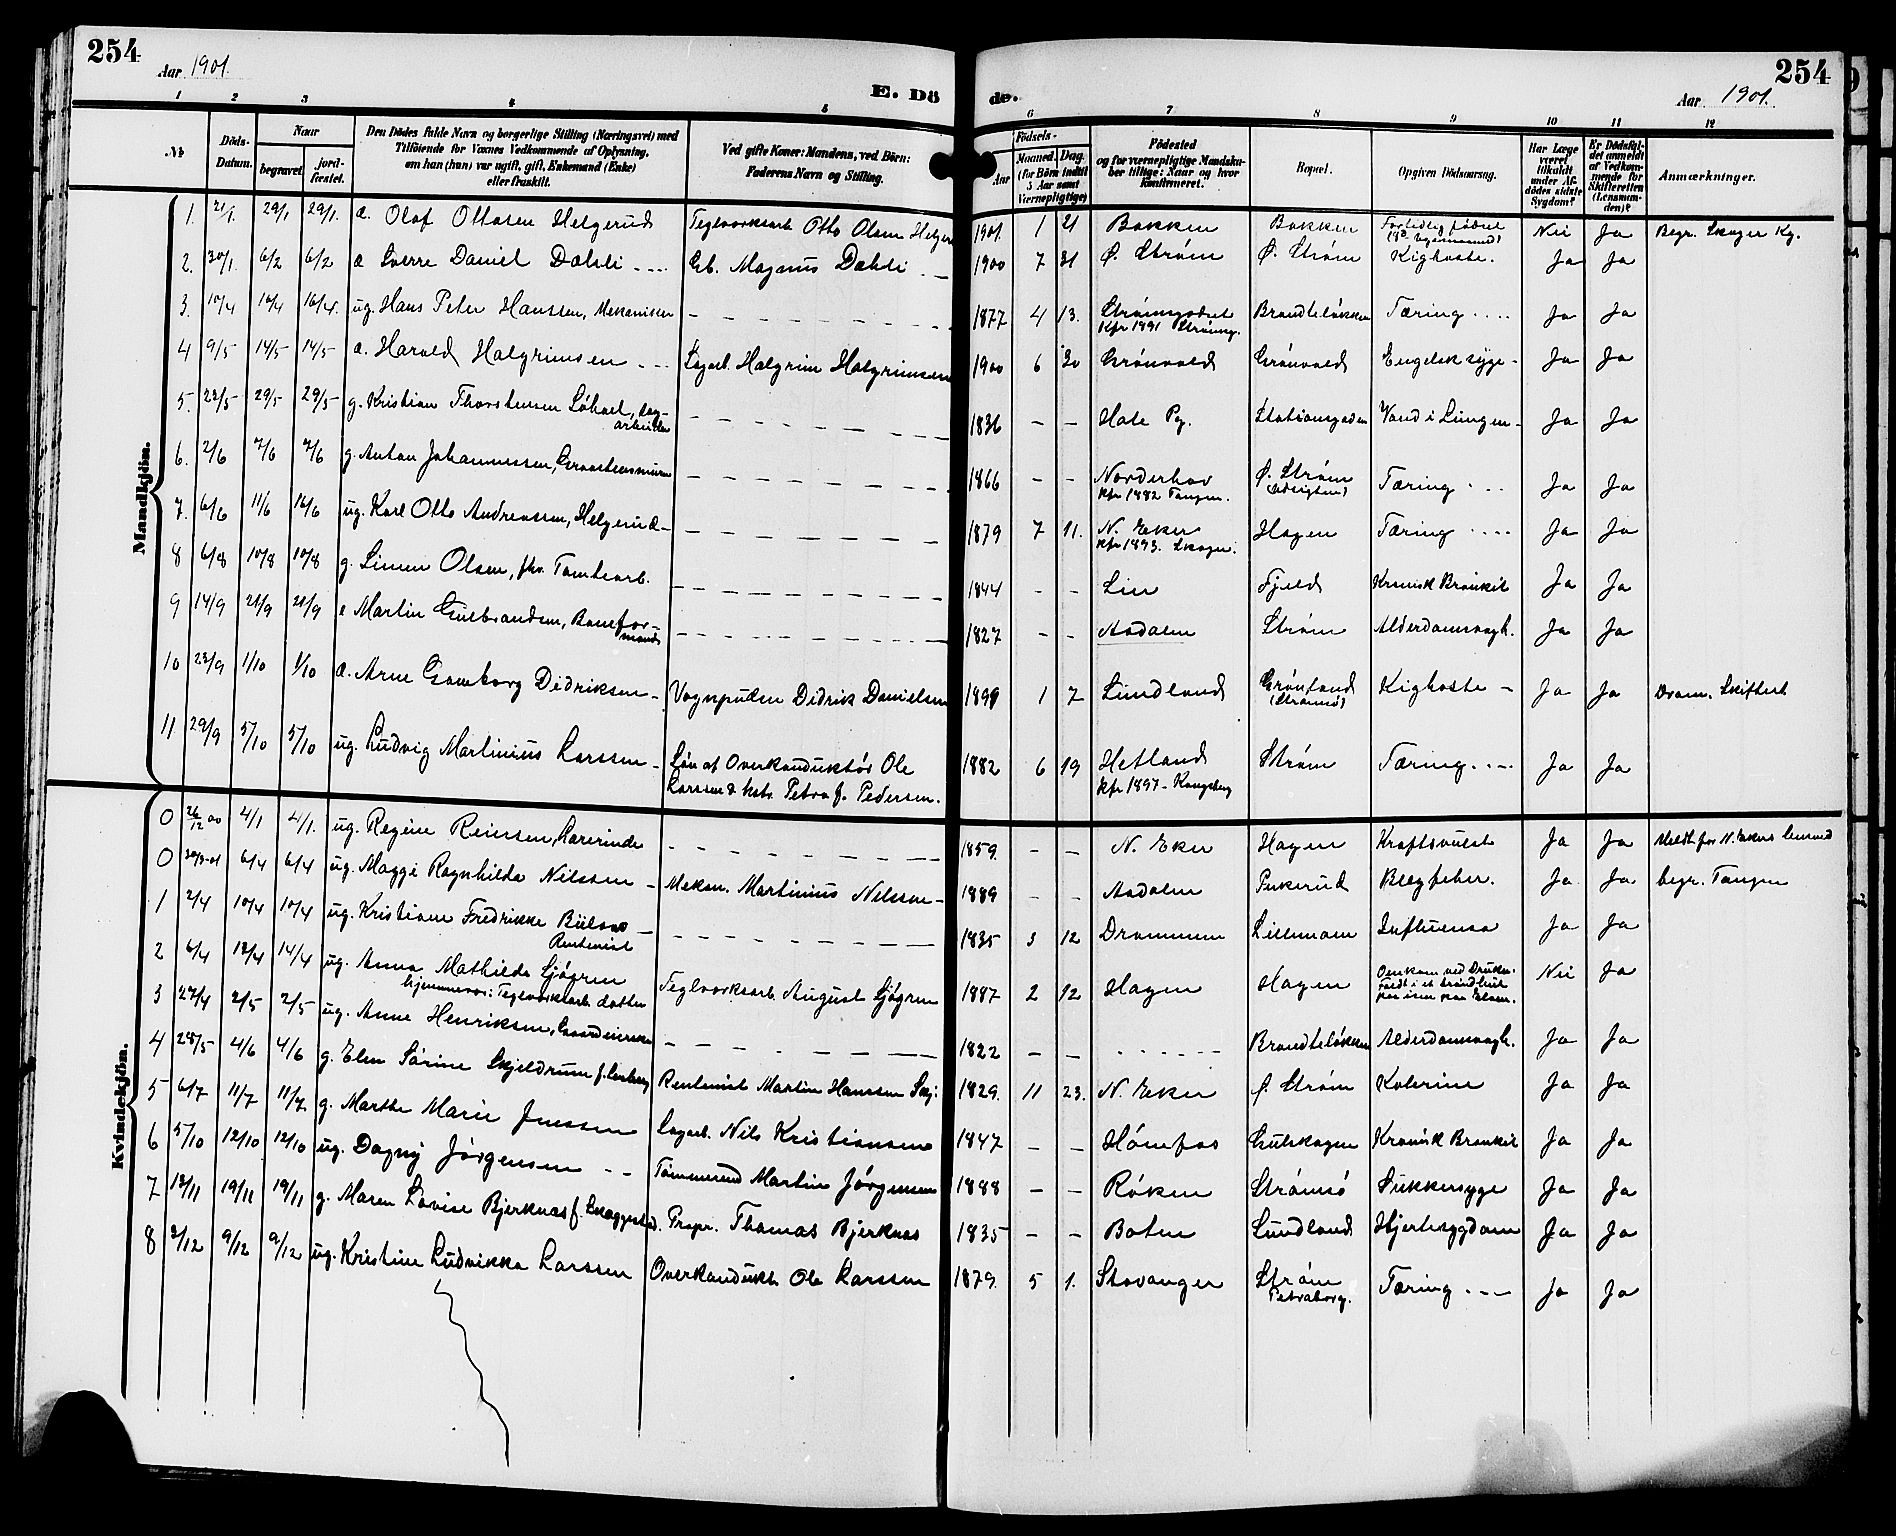 254
Aar 1901.
E. Dö
1 2 3 4 5
№
Döds-Datum.
Naar
begravet.
jord-fæstet.
Den Dødes fulde Navn og borgerlige Stilling (Næringsvei) med
Tilföiende for Voxnes Vedkommende af Oplysning,
om han (hun) var ugift, gift, Enkemand (Enke)
eller fraskilt.
Ved gifte Koner: Mandens, ved Börn:
Faderens Navn og Stilling.
Mandkjön.
1. 21/1. 29/1 29/1. æ. Olaf Ottosen Helgerud Teglverksarb. Otto Olsen Helger
2. 30/1. 6/2 6/2 æ Sverre Daniel Dæhli Gb. Magnus Dæhli
3. 10/4 16/4 16/4. ug. Hans Peter Hanssen, Mekaniker
4 9/5 14/5 14/5 æ. Harald Halgrimsen Sagarb. Halgrim Halgrimsen
5. 23/5 29/5 29/5 g. Kristian Thorstensen Løkael, dag-
arbeider
6. 2/6 7/6 7/6 g. Anton Johannessen, Graastensmurer
7. 6/6 11/6 16/6 ug. Karl Otto Andreassen, Helgerud
8 6/8 10/8 10/8 g. Simen Olsen, fhv. Tomtearb.
9 14/9 21/9 21/9 e Martin Gulbrandsen, Banefor-
mand
10 23/9 1/10 1/10 æ. Arne Gamborg Didriksen Vognpudser Didrik Danielsen
11 29/9 5/10 5/10 ug. Ludvig Martinius Larssen Søn af Overkonduktør Ole
Larssen & hstr. Petra f. Pedersen.
Kvindekjön.
0 26/12 00 4/1 4/1. ug. Regine Reiersen, Lærerinde
0 30/3-01 6/4 6/4 ug. Maggi Ragnhilda Nilssen Mekan. Martinius Nilssen
1 2/4 10/4 10/4 ug. Kristiane Fredrikke
Rentenist
2 6/4 12/4 14/4 ug. Anna Mathilda Sjögren Teglverksarb. August Sjögren
hjemmevær: Teglverksarb. datter
3 27/4 2/5 2/5 ug. Anne Henriksen, Gaardeierske
4 28/5 4/6 4/6 g. Elen Sørine Skjeldrum f. Rentenist Martin Hanssen Skj:
5 6/7 11/7 11/7 g. Marthe Marie Jenssen Sagarb. Nils Kristiansen
6 5/10 12/10 12/10 ug. Dagny Jørgensen Tømmermd Martin Jørgensen
7 13/11 19/11 19/11 g. Maren Lovise Bjerknæs f. Skaggestad. Propr. Thomas Bjerknæs
8 3/12 9/12 9/12 ug. Kristine Ludvikka Larssen Overkondukt. Ole Larssen
254
Aar 1901.
de.
6 7 8 9 10 11 12
Födsels-
Aar
Maaned. Dag.
(for Börn indtil
5 Aar samt
Værnepligtige)
Födested
og for værnepligtige Mandska-
ber tillige: Naar og hvor
konfirmeret.
Bopæl.
Opgiven Dödsaarsag.
Har Læge
været
tilkaldt
under Af-
dödes sidste
Sygdom?
Er Dødsfal-
det anmeldt
af Vedkom-
mende for
Skifteretten
(Lensman-
den)?
Anmærkninger.
1901. 1 21 Bakken Bakken Fortidlig fødsel Nei Ja Begr. Skoger Kg.
1900 7 31 Ø. Strøm Ø. Strøm Kighoste. Ja Ja
1877 4 13. Strømsgodset Brandteløkken Tæring Ja Ja
kfr 1891 Strømsg.
1900 6 30 Grønvold Grønvold Engelsk syge Ja Ja
1836 — — Hole Pg. Stationsgaden Vand i Lungen Ja Ja
1866 — — Norderhov Ø. Strøm Tæring Ja Ja
kfr 1882 Tangen.
1879 7 11. N. Eker Hagen Tæring Ja Ja
kfr 1893. Skoger.
1844 — — Lier Fjeld Kronisk Bronkit Ja Ja
1827 — — Aadalen Strøm Alderdomssvagh. Ja Ja
1899 1 7 Sundland Grønland Kighoste Ja Ja Dram. Skifteret
(Strømsø)
1882 6 19 Hetland Strøm Tæring Ja Ja
kfr 1897 - Kongsberg
1859. — — N. Eker Hagen Kræftsvulst Ja Ja Meldt for N. Ekers lensmd
1889 — — Aadalen Pukerud Blegfeber. Ja Ja begr. Tangen
1835 3 12 Drammen Lillemoen Influensa Ja Ja
1887 2 12 Hagen Hagen Omkom ved Drukn. Nei Ja
1822 — — Brandteløkken Alderdomssvagh. Ja Ja
1829. 11 23. N. Eker Ø. Strøm Kolerine Ja Ja
1847 — — Hønefos Gulskogen Kronisk Bronkit Ja Ja
1888 — — Røken Strømsø Sukkersyge Ja Ja
1835 — — Botne Sundland Hjertesygdom Ja Ja
1879. 5 1. Stavanger Strøm Tæring Ja Ja
Petraborg.